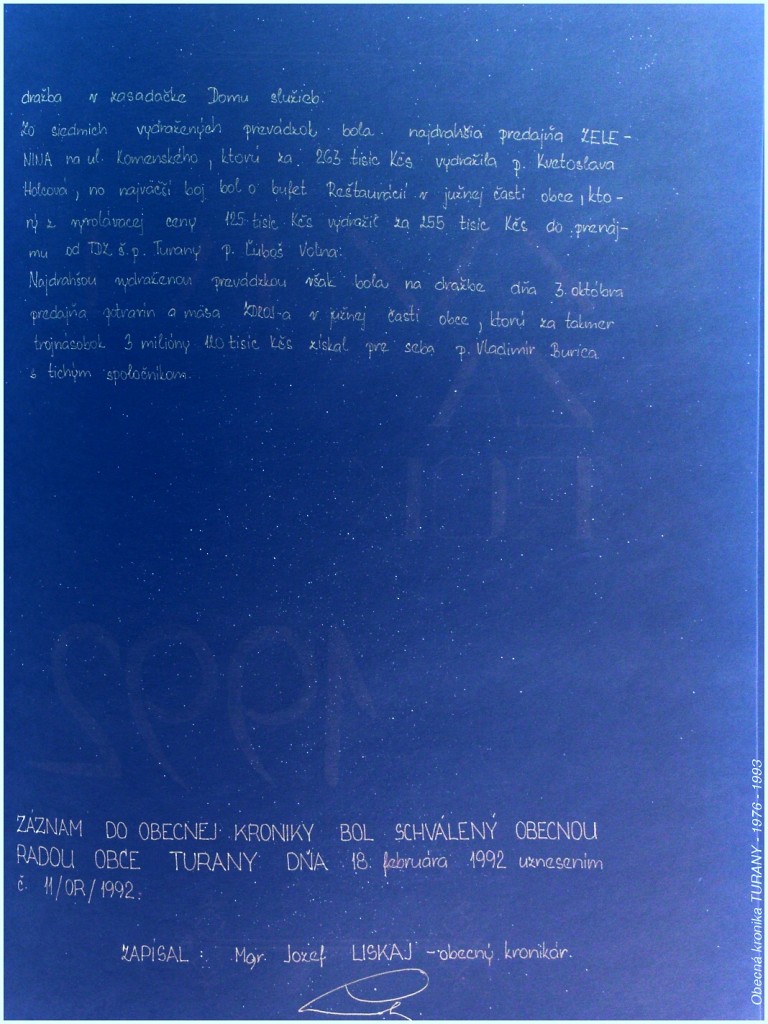 dražba v zasadačke Domu služieb.
Zo siedmich vydražených prevádzok bola najdrahšia predajňa ZELE-
NINA na ul. Komenského, ktorú za 263 tisíc Kčs vydražila p. Kvetoslava
Holcová, no najväčší boj bol o bufet Reštaurácií v južnej časti obce, kto-
rý z vyvolávacej ceny 125 tisíc Kčs vydražil za 255 tisíc Kčs do prenáj-
mu od TDZ š.p. Turany p. Ľuboš Volna.
Najdrahšou vydraženou prevádzkou však bola na dražbe dňa 3. októbra
predajňa potravín a mäsa ZDROJ-a v južnej časti obce, ktorú za takmer
trojnásobok 3 milióny 120 tisíc Kčs získal pre seba p. Vladimír Burica
s tichým spoločníkom.
1992
ZÁZNAM DO OBECNEJ KRONIKY BOL SCHVÁLENÝ OBECNOU
RADOU OBCE TURANY DŇA 18. februára 1992 uznesením
č. 11/OR/1992.
ZAPÍSAL: Mgr. Jozef LISKAJ - obecný kronikár.
Obecná kronika TURANY - 1976 - 1993